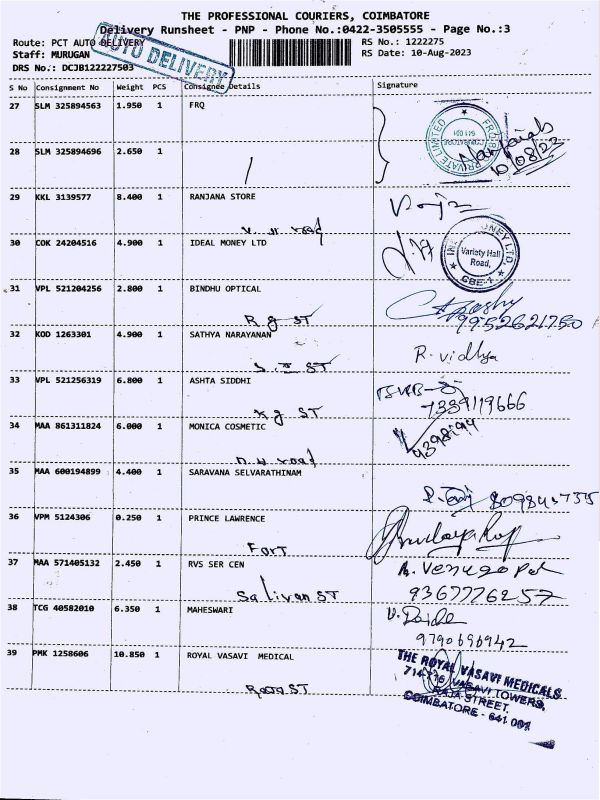 THE PROFESSIONAL COURIERS, COIMBATORE
Delivery Runsheet - PNP - Phone No.:0422-3505555 - Page No.:3
Route: PCT AUTO DELIVERY
RS No.: 1222275
AUTO DELIVERY
Staff: MURUGAN
RS Date: 10-Aug-2023
DRS No.: DCJB122227503
S No Consignment No Weight PCS Consignee Details Signature
27 SLM 325894563 1.950 1 FRQ
PRIVATE LIMITED
10/08/23
28 SLM 325894696 2.650 1
29 KKL 3139577 8.400 1 RANJANA STORE
V. H road
30 COK 24204516 4.900 1 IDEAL MONEY LTD
MONEY LTD.
Variety Hall
Road,
CBE-1
31 VPL 521204256 2.800 1 BINDHU OPTICAL
R g ST
9952621750
32 KOD 1263301 4.900 1 SATHYA NARAYANAN
R. vidhya
33 VPL 521256319 6.800 1 ASHTA SIDDHI
7339119666
K g ST
34 MAA 861311824 6.000 1 MONICA COSMETIC
35 MAA 600194899 4.400 1 SARAVANA SELVARATHINAM
36 VPM 5124306 0.250 1 PRINCE LAWRENCE
Fort
37 MAA 571405132 2.450 1 RVS SER CEN
Venugopal
Salivan ST
9367776257
38 TCG 40582010 6.350 1 MAHESWARI
9790696942
39 PMK 1258606 10.850 1 ROYAL VASAVI MEDICAL
THE ROYAL VASAVI MEDICALS
714-716, VASAVI TOWERS,
RAJA STREET,
COIMBATORE - 641 001